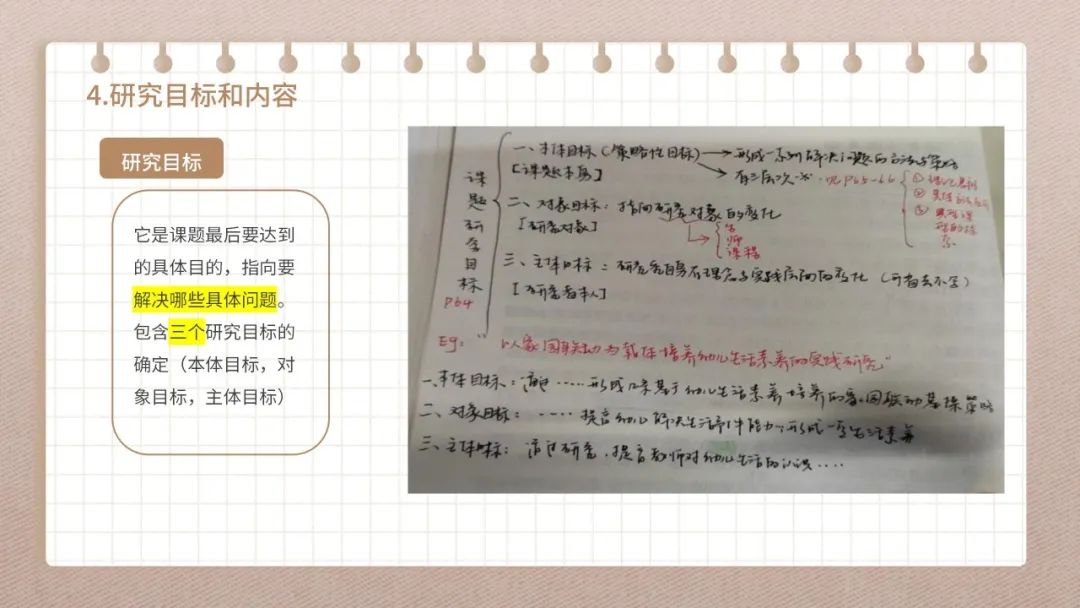 4.研究目标和内容
研究目标
它是课题最后要达到
的具体目的，指向要
解决哪些具体问题。
包含三个研究目标的
确定（本体目标，对
象目标，主体目标）
课题研究目标
P64
一、本体目标（策略性目标）→形成一系列解决问题的方法与策略
[课题本身]
→有三层次 ※ 见P65-66
①
②
③
二、对象目标：指向研究对象的变化
[研究对象]
生
师
课程
三、主体目标：研究者自身在理念与实践层面的变化（可省去不写）
[研究者本人]
Eg：“以家园联动为载体培养幼儿生活素养的实践研究”
一、本体目标：通过……形成几条基于幼儿生活素养培养的家园联动基操策略
二、对象目标：……提高幼儿解决生活 能力，形成一定生活素养
三、主体目标：通过研究，提高教师对幼儿生活的认识……